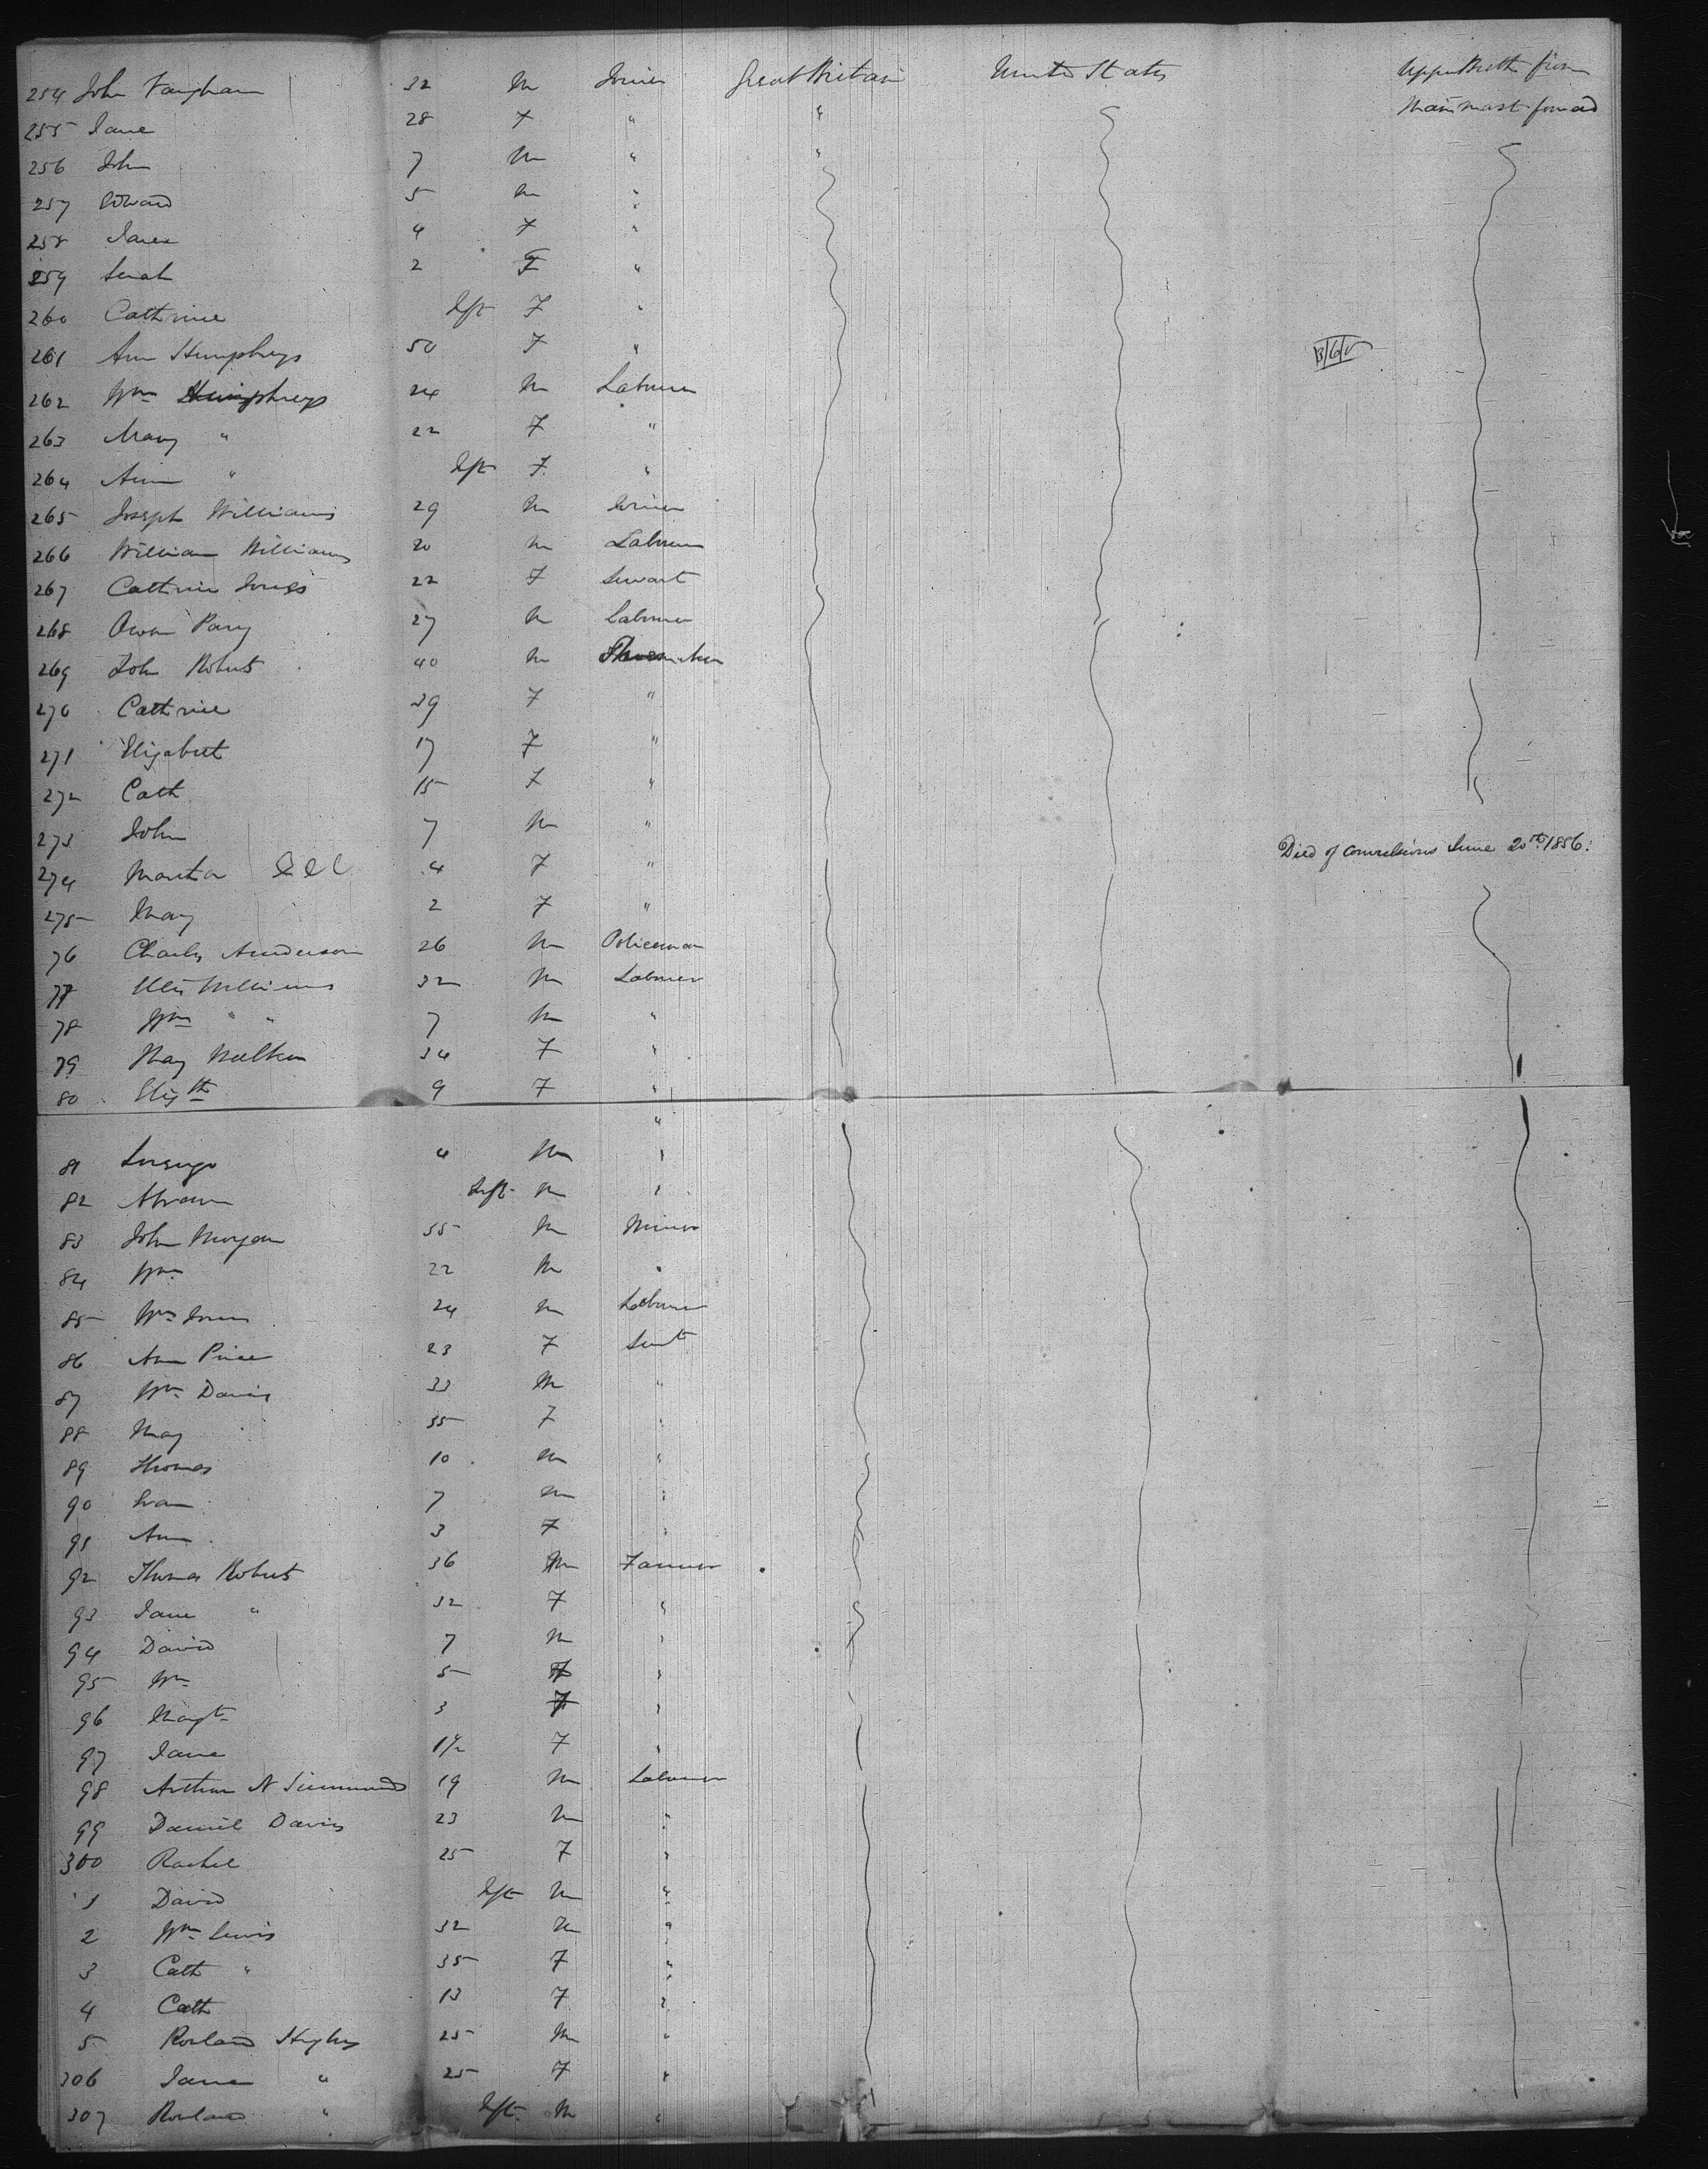 254 John Vaughan 32 M Joiner Great Britain United States Upper Berth from
Main mast forward
255 Jane 28 F " "
256 John 7 M " "
257 Edward 5 M "
258 Jane 4 F "
259 Sarah 2 F "
260 Cathrine Inft F "
261 Ann Humphreys 50 F "
262 Wm Humphreys 24 M Labourer
263 Mary " 22 F "
264 Ann " Inft F "
265 Joseph Williams 29 M Joiner
266 William Williams 20 M Labourer
267 Cathrine Jones 22 F Servant
268 Owen Parry 27 M Labourer
269 John Roberts 40 M
270 Cathrine 39 F "
271 Elizabeth 17 F "
272 Cath 15 F "
273 John 7 M "
274 Martha 4 F " Died of convulsions June 20th 1856.
275 Mary 2 F "
76 Charles Anderson 26 M Policeman
77 Ellis Williams 32 M Labourer
78 Wm " " 7 M "
79 Mary 34 F "
80 Elizth 9 F "
"
81 4 M "
82 Abram Inft M "
83 John Morgan 55 M Miner
84 Wm 22 M "
85 Wm Jones 24 M Labourer
86 Ann Price 23 F Servt
87 Wm Davis 33 M "
88 Mary 35 F "
89 Thomas 10 M "
90 Evan 7 M "
91 Ann 3 F "
92 Thomas Roberts 36 M Farmer
93 Jane " 32 F "
94 David 7 M "
95 Wm 5 "
96 Margt 3 F "
97 Jane 1½ F "
98 Arthur N Simmonds 19 M Labourer
99 Daniel Davis 23 M "
300 Rachel 25 F "
1 David Inft M "
2 Wm Lewis 32 M "
3 Cath " 35 F "
4 Cath 13 F "
5 Rowland Hughes 25 M "
306 Jane " 25 F "
307 Rowland " Inft M "